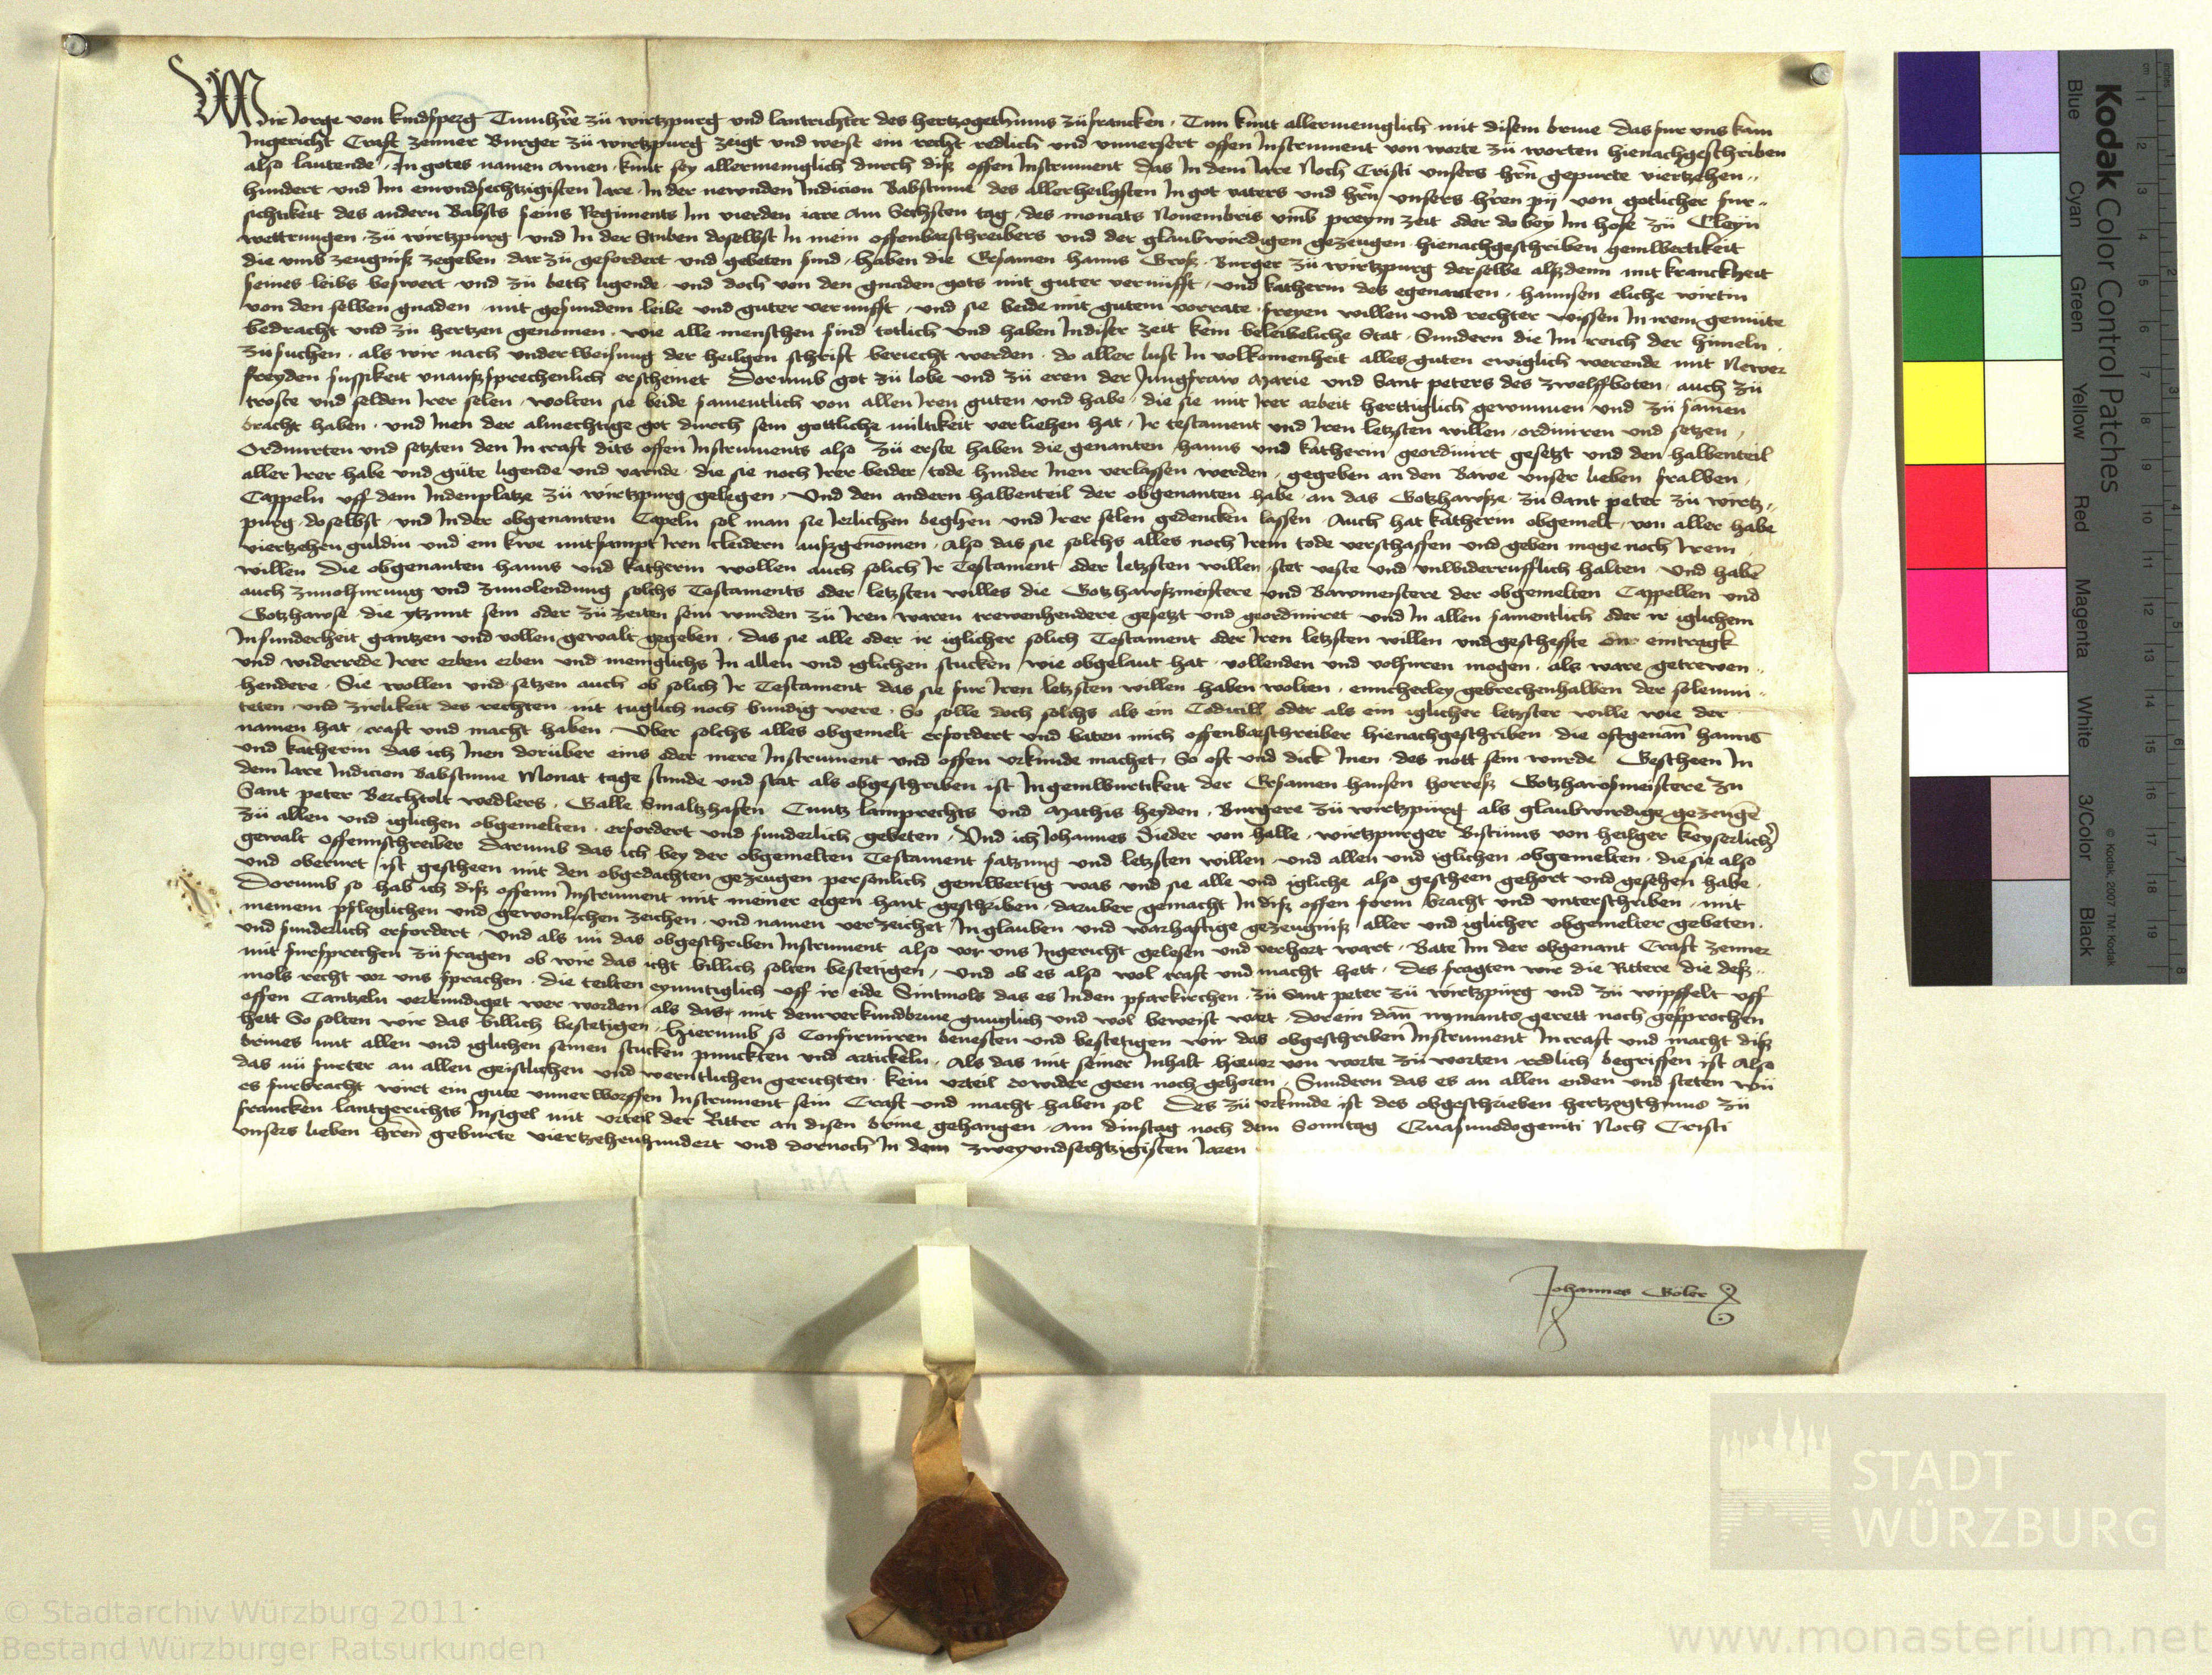 Wir Jorge von kindsperg Tumhr̄e zü wirtzpurg und lantrichter des hertzogethums zü francken · Tun kunt allermeniglich mit disem brine das fur uns kam
Ingericht Craft zenner Burger zü wirtzpurg zeigt und weist ein recht redlich und unuersert offen Instrument von worte zü worten hienachgeschriben
also lautende · In gotes namen amen · kunt sey allermeniglich durch diß offen Instrument das In dem Iare Noch Cristi unsers hrn̄ gepurte viertzehen
hundert und Im einundsechtzigisten Iare In der newnden Indicion Babstume des allerheilgsten In got vaters und hrn̄ unsers hr̄en pij von gotlicher fur
sichtikeit des andern Babsts seins Regiments Im vierden iare am Sechsten tag des monats Nouembris umb preym zeit oder do bey Im hofe zü Cleyn
wettrungen zü wirtzpurg und In der Stuben doselbst In mein offenbarschreibers und der glaubwirdigen gezeugen hienachgeschriben gemwertikeit
die umb zeugniß zegeben dar zü gefordert und gebeten sind · haben die Ersamen hanns Groß Burger zü wirtzpurg derselbe alßdenn mit kranckheit
seines leibs beswert und zü beth ligende und doch von den gnaden gots mit guter vernufft und katherin des egenanten hannsen eliche wirtin
von den selben gnaden mit gesundem leibe und guter vernufft und sie beide mit gutem vorrate freyen willen und rechter wissen In irem gemüte
bedracht und zü hertzen genomen wie alle menschen sind totlich und haben Indiser zeit kein beleibeliche Stat Sundern die Im reich der himeln
züsuchen als wir nach underweisung der heilgen schrift bericht werden do aller lust In volkomenheit alles guten ewiglich werende mit Newer
freyden sussikeit unaußsprechenlich erscheinet Dorumb got zü lobe und zü eren der Jungfraw Marie und Sant peters des zwelffboten auch zü
troste und selden Irer selen wolten sie beide samentlich von allen Iren guten und habe die sie mit Irer arbeit herttiglich gewunnen und zü samen
bracht haben und Inen der almechtige got durch sein gottliche miltikeit verliehen hat Ir testament und Iren letzsten willen ordiniren und setzen
Ordinirten und setzten den In craft dits offen Instruments also zü erste haben die genanten hanns und katherin geordinirt gesetzt und den halbenteil
aller Irer habe und güte ligende und varnde die sie noch Irer beider tode hinder Inen verlassen werden gegeben an den Bawe unser lieben frawen
Cappeln uff dem Indenplatze zü wirtzpurg gelegen Und den andern halbenteil der obgenanten habe an das Gotzhawße zü Sant peter zü wirtz
purg doselbst und In der obgenanten Capeln sol man sie Ierlichen beghen und Irer selen gedencken lassen Auch hat katherin obgemelt von aller habe
viertzehen guldin und ein kwe mitsampt Iren cleidern außgenomen Also das sie solchs alles noch Irem tode verschaffen und geben moge noch Irem
willen Die obgenanten hanns und katherin wollen auch solich Ir Testament oder letzsten willen stet veste und unwiderrufflich halten Und haben
auch zuuolfurung und zuuolendung solchs Testaments oder letzsten willes die Gotzhawßmeistere und Bawmeistere der obgemelten Cappellen und
Gotzhawse die ytzunt sein oder zü zeiten sein wurden zü Iren waren trewenhendere gesetzt und geordiniret und In allen samentlich oder ir iglichem
Insunderheit gantzen und vollen gewalt gegeben das sie alle oder ir iglicher solich Testament oder Iren letzsten willen und gescheffte one eintragk
und widerrede Irer erben erben und meniglichs In allen und iglichen stucken wie obgelaut hat vollenden und volfuren mogen als ware getrewen
hendere Sie wollen und setzen auch ob solich Ir Testament das sie fur Iren letzsten willen haben wolten einicherley gebrechenhalben der solemni
teten und zirlikeit des rechten nit tuglich noch bundig were So solle doch solchs als ein Codicill oder als ein iglicher letzster wille wie der
namen hat craft und macht haben Uber solchs alles obgemelt erfordert und baten mich offenbarschreiber hienachgeschriben die oftgenan̄ hanns
und katherin das ich Inen dorüber eins oder mere Instrument und offen urkunde machet So oft und dick Inen des nott sein wurde Gescheen In
dem Iare Indicion Babstume Monat tage stunde und stat als obgeschriben ist Ingemwurtikeit der Ersamen hansen horreß Gotzhawsmeistere zu
Sant peter Berchtolt wedlers Galle Smaltzhafen Cuntz lamprechts und Mathis heyden Burgere zü wirtzpurg als glaubwirdige gezeugē
zü allen und iglichen obgemelten erfordert und sunderlich gebeten Und ich Johannes Dieder von halle wirtzpurger Bistums von heilger keyserlich̄
gewalt offennschreiber Darumb das ich bey der obgemelten Testament satzung und letzsten willen und allen und iglichen obgemelten die sie also
und oberurt ist gescheen mit den obgedachten gezeugen personlich gemwertig was und sie alle und igliche also gescheen gehort und gesehen habe
Dorumb so hab ich diß offenn Instrument mit meiner eigen hant geschriben daruber gemacht In diß offen form bracht und unterschriben mit
meinem pfleglichen und gewonlichen zeichen und namen verzeichet In glauben und warhaftige gezeugniß aller und iglicher obgemelter gebeten
und sunderlich erfordert Und als nü das obgeschriben Instrument also vor uns Ingericht gelesen und verhort wart Bate Im der obgenant Craft zenner
mit fursprechen zü fragen ob wir das icht billich solten bestetigen und ob es also wol craft und macht hett Des fragten wir die Rittere die deß
mols recht vor uns sprachen die teilten eynmutiglich uff ir eide Sintmols das es Inden pfarkirchen zü Sant peter zü wirtzpurg und zü wipffelt uff
offen Cantzeln verkundiget wer worden als das mit dem verkundbrine gnuglich und wol beweist wart dorein dan̄ nymants gerett noch gesprochen
hett So solten wir das billich bestetigen Hierumb so Confirmirren beuesten und bestetigen wir das obgeschriben Instrument In craft und macht diß
brines mit allen und iglichen seinen stucken punckten und artickeln Als das mit seiner Inhalt hieuor von worte zü worten redlich begriffen ist Also
das nü furter an allen geistlichen und werntlichen gerichten kein urteil dowider geen noch gehoren Sundern das es an allen enden und steten wü
es furbracht wirt ein gute unuerworffen Instrument sein Craft und macht haben sol Des zü urkunde ist des obgeschrieben hertzogthums zü
francken lantgerichts Insigel mit urteil der Ritter an disen brine gehangen Am dinstag noch dem Sonntag Quasimodogeniti Noch Cristi
unsers lieben hren̄ geburte viertzehenhundert und dornoch In dem zweyundsechtzigisten Iaren
Johannes
Kodak Color Control Patches
Blue Cyan Green Yellow Red Magenta White 3/Color Black
© Kodak, 2007 TM: Kodak
STADT
WÜRZBURG
© Stadtarchiv Würzburg 2011
Bestand Würzburger Ratsurkunden
www.monasterium.net